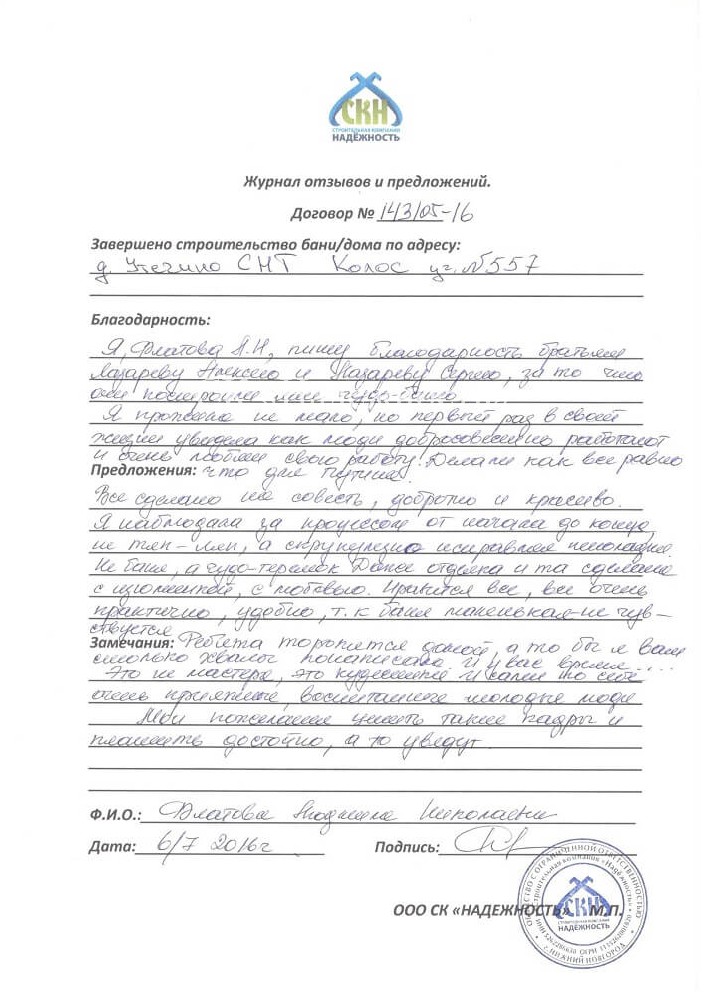 СКН
СТРОИТЕЛЬНАЯ КОМПАНИЯ
НАДЁЖНОСТЬ
Журнал отзывов и предложений.
Договор № 143/05-16
Завершено строительство бани/дома по адресу:
д. Утечино СНТ Колос уч. №557
Благодарность:
Я, Флатова Л.Н, пишу благодарность братьям
Лазареву Алексею и Лазареву Сергею, за то что
они построили мне чудо-баню.
Я прожила не мало, но первый раз в своей
жизни увидела как люди добросовестно работают
и очень любят свою работу. Делали как все равно
Предложения: что для Путина.
Все сделано на совесть, добротно и красиво.
Я наблюдала за процессом от начала до конца,
не тяп-ляп, а скрупулезно исправляя неполадки.
Не баня, а чудо-теремок Даже отделка и та сделана
с изюминкой, с любовью. Нравится все, все очень
практично, удобно, т.к баня маленькая-не чув-
ствуется
Замечания: Ребята торопятся домой, а то бы я вам
столько хвалы понаписала и у вас время....
Это не мастера, это кудесники И сами по себе
очень приятные, воспитанные молодые люди
Мои пожелания ценить такие кадры и
платить достойно, а то уведут.
Ф.И.О.: Флатова Людмила Николаевна
Дата: 6/7 2016г Подпись:
ООО СК «НАДЕЖНОСТЬ» М.П.
ОБЩЕСТВО С ОГРАНИЧЕННОЙ ОТВЕТСТВЕННОСТЬЮ
Строительная компания «Надёжность»
СКН
СТРОИТЕЛЬНАЯ КОМПАНИЯ
НАДЁЖНОСТЬ
г. НИЖНИЙ НОВГОРОД